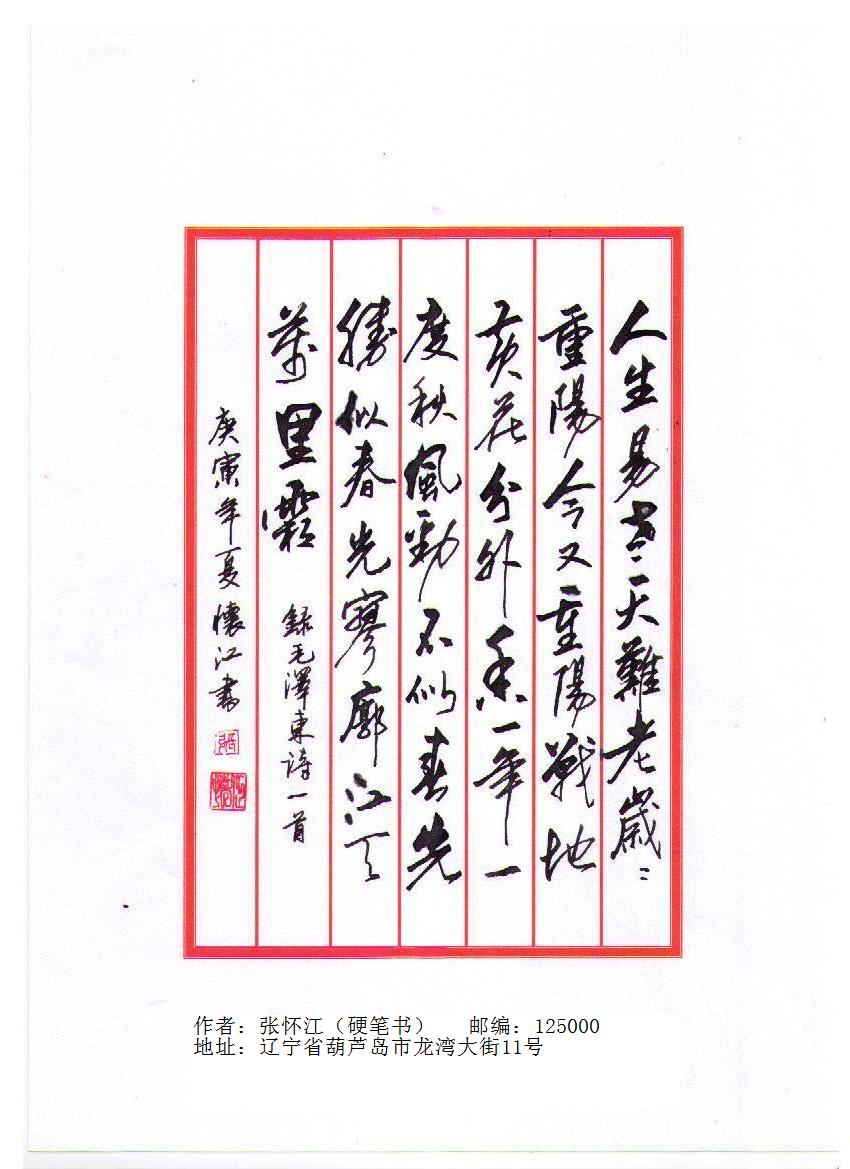 人生易老天難老歲々
重陽今又重陽戰地
黄花分外香一年一
度秋風勁不似春光
勝似春光寥廓江天
萬里霜 錄毛澤東詩一首
庚寅年夏懷江書
作者：张怀江（硬笔书） 邮编：125000
地址：辽宁省葫芦岛市龙湾大街11号